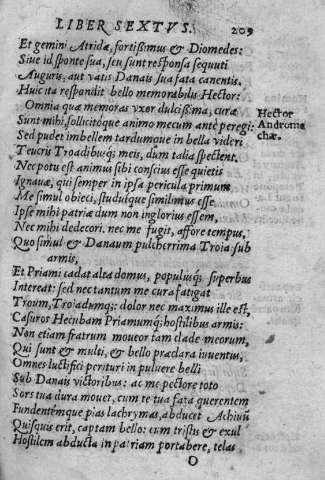 LIBER SEXTVS. 209
Et gemini Atridæ, fortißimus & Diomedes:
Siue id sponte sua, seu sunt responsa sequuti
Auguris, aut vatis Danais sua fata canentis.
Huic ita respondit bello memorabilis Hector:
Omnia quæ memoras vxor dulcißima, curæ
Hector
Sunt mihi, sollicitoque animo mecum antè peregi:
Androma
Sed pudet imbellem tardumque in bella videri
chæ.
Teucris Troadibusq; meis, dum talia spectent.
Nec potu est animus sibi conscius esse quietis
Ignauæ, qui semper in ipsa pericula primum
Me simul obieci, studuique simillimus esse.
Ipse mihi patriæ dum non inglorius essem,
Nec mihi dedecori. nec me fugit, affore tempus,
Quo simul & Danaum pulcherrima Troia sub
armis,
Et Priami cadat alta domus, populusq; superbus
Intereat: sed nec tantum me cura fatigat
Troum, Troiadumq;: dolor nec maximus ille est,
Casuros Hecubam Priamumq; hostilibus armis:
Non etiam fratrum moueor tam clade meorum,
Qui sunt & multi, & bello præclara iuuentus,
Omnes luctifici perituri in puluere belli
Sub Danais victoribus: ac me pectore toto
Sors tua dura mouet, cum te tua fata querentem
Fundentémque pias lachrymas, abducet Achiuû
Quisquis erit, captam bello: cum tristis & exul
Hostilem abducta in patriam portabere, telas
O